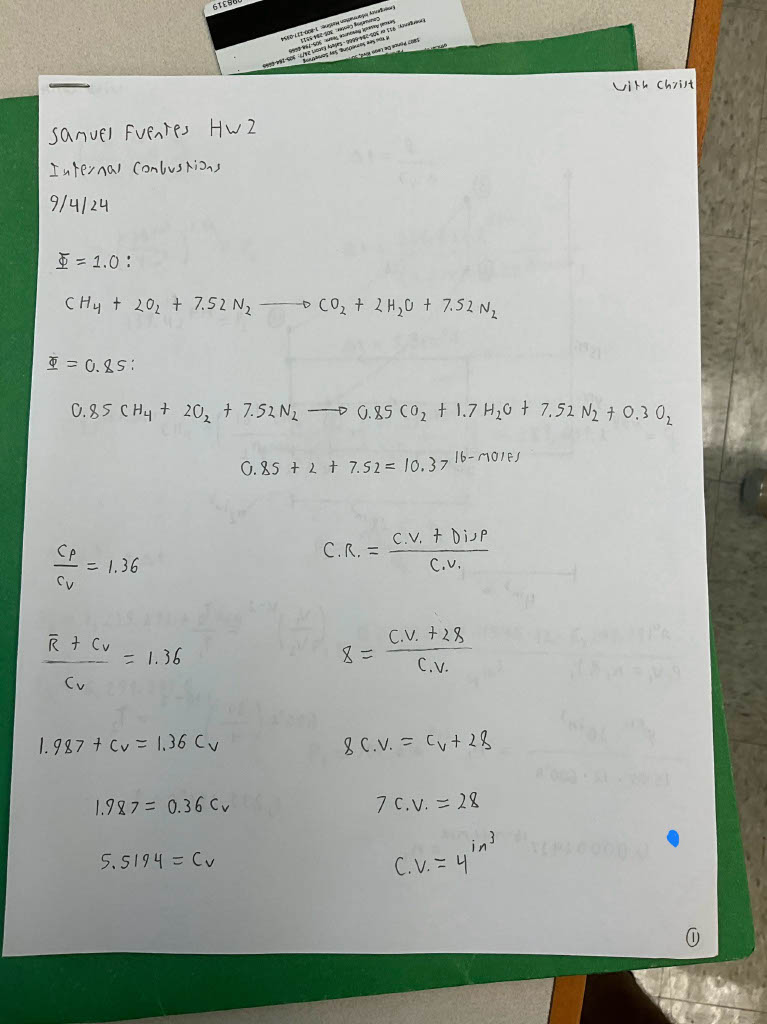 With Christ
Samuel Fuentes HW 2
Internal Combustions
9/4/24
Φ = 1.0:
CH₄ + 2O₂ + 7.52 N₂ → CO₂ + 2H₂O + 7.52 N₂
Φ = 0.85:
0.85 CH₄ + 2O₂ + 7.52 N₂ → 0.85 CO₂ + 1.7 H₂O + 7.52 N₂ + 0.3 O₂
0.85 + 2 + 7.52 = 10.37 lb-moles
Cp/Cv = 1.36
C.R. = (C.V. + Disp)/C.V.
(R̄ + Cv)/Cv = 1.36
8 = (C.V. + 28)/C.V.
1.987 + Cv = 1.36 Cv
8 C.V. = Cv + 28
1.987 = 0.36 Cv
7 C.V. = 28
5.5194 = Cv
C.V. = 4 in³
1